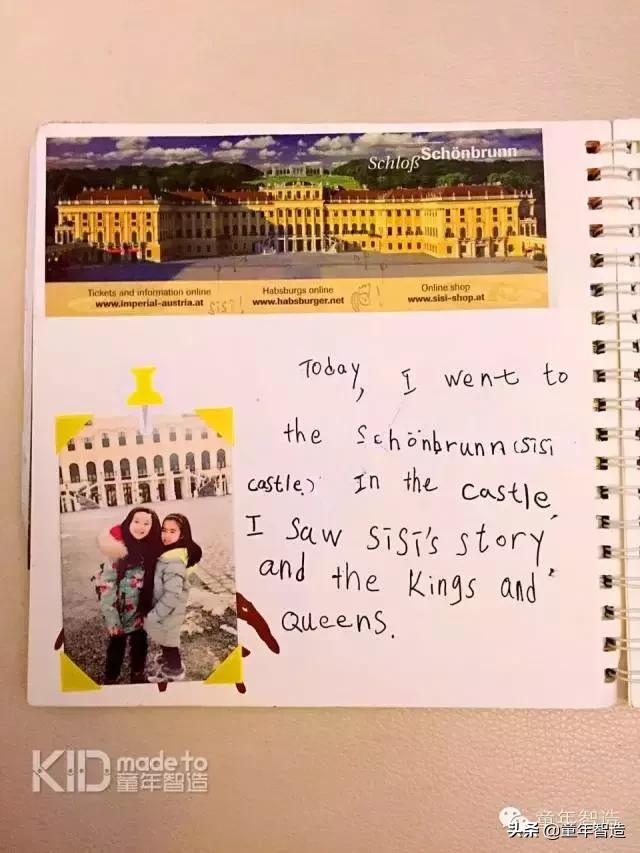 Schloß Schönbrunn
Tickets and information online
www.imperial-austria.at
Habsburgs online
www.habsburger.net
Online shop
www.sisi-shop.at
Today, I went to
the Schönbrunn(sisi
castle.) In the castle,
I saw SISI's story
and the Kings and
Queens.
KID made to
童年智造
童年智造
头条 @童年智造